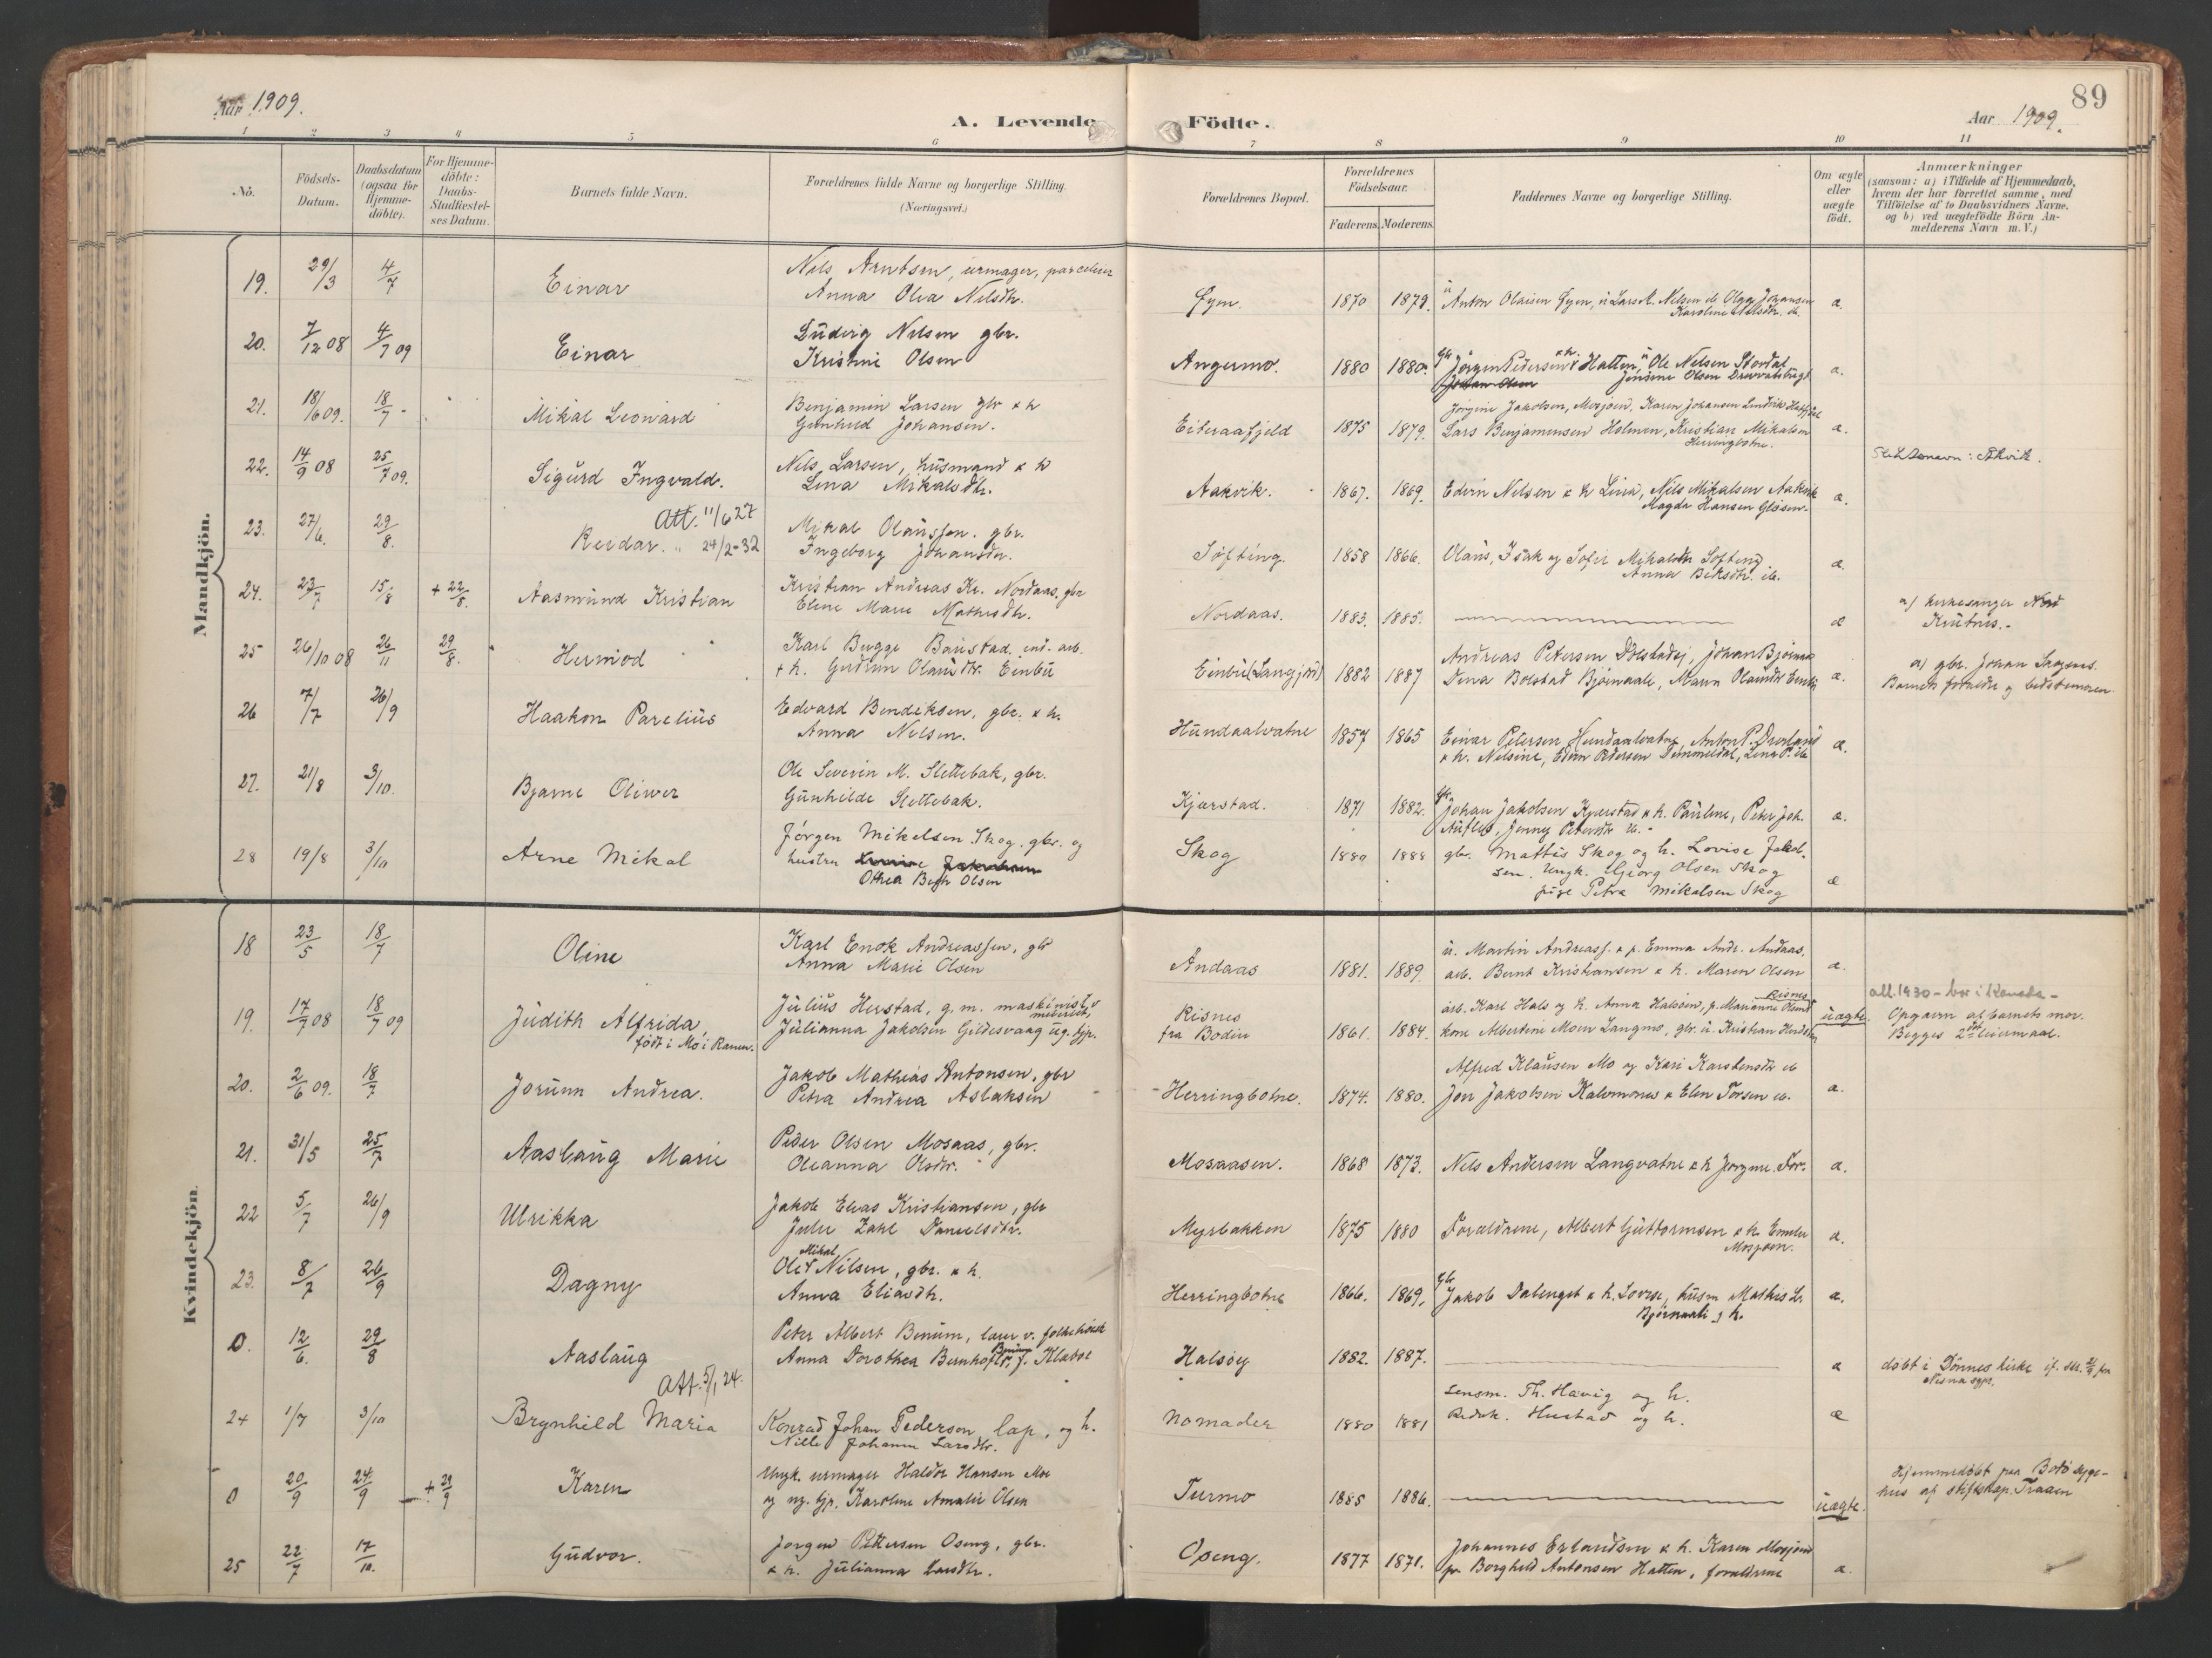 Aar 1909.
A. Levende Födte.
Aar 1909.
89
1 2 3 4 5 6 7 8 9 10 11
No.
Födsels-Datum.
Daabsdatum (ogsaa for Hjemme-döbte).
For Hjemme-döbte: Daabs-Stadfæstel-ses Datum.
Barnets fulde Navn.
Forældrenes fulde Navne og borgerlige Stilling.
(Næringsvei.)
Forældrenes Bopæl.
Forældrenes Födselsaar.
Faderens. Moderens.
Faddernes Navne og borgerlige Stilling.
Om ægte eller uægte födt.
Anmærkninger
(saasom: a) i Tilfælde af Hjemmedaab,
hvem der har forrettet samme, med
Tilföielse af to Daabsvidners Navne,
og b) ved uægtefödte Börn An-
melderens Navn m. V.)
Mandkjön.
19. 29/3 4/7 Einar
Nils Arntsen, urmager, parceleier
Anna Olea Nilsdtr.
Øyen. 1870 1879. Anton Olaisen Øyen, Lars A. Nilsen ib Olga Johansen
Karoline Nilsdtr. ib. æ.
20. 7/12 08 4/7 09 Einar
Ludvig Nilsen gbr.
Kristine Olsen
Angermo. 1880 1880. Jörgen Pedersen Hatten, Ole Nilsen Stordal
Jensine Olsen æ.
21. 18/6 09. 18/7 Mikal Leonard
Benjamin Larsen gbr & h
Gunhild Johansen.
Eiteraafjeld 1875 1879.
Jörgine Jakobsen, Mosjöen, Karen Johansen
Lars Benjaminsen Holmen, Kristian Mikalsen
Herringbotne. æ.
22. 14/9 08 25/7 09. Sigurd Ingvald.
Nils Larsen, husmand & h
Lina Mikalsdtr.
Aakvik. 1867. 1869. Edvin Nilsen & h Lina, Nils Mikalsen Aakvik
Magda Hansen æ.
Slektsnavn: Åkvik.
23. 27/6. 29/8. Reidar.
Att. 11/6 27
" 24/2-32
Mikal Olausson. gbr.
Ingeborg Johansdtr.
Söfting. 1858 1866. Olaus, Isak og Sofie Mikalsdtr Söfting
Anna ib. æ.
24. 23/7 15/8 + 22/8. Aasmund Kristian
Kristian Andreas Kr. Nordaas. gbr
Eline Marie Mathisdtr.
Nordaas. 1883. 1885. æ
a) kirkesanger
25 26/10 08 26/11 29/8. Hermod
Karl Bugge Baustad, ind. arb.
& h. Gudrun Olausdtr. Einbu
Einbu (Langjord) 1882 1887
Andreas Petersen Dolstadsj, Johan Björnaas
Dina Bolstad Björnaali, Maria Olausdtr Einbu æ.
a) gbr. Johan
Barnets forældre og bedstemoren.
26 7/7 26/9 Haakon Parelius
Edvard Bendiksen, gbr. & h.
Anna Nilsen.
Hundaalvatne 1857 1865 Einar Petersen Hundaalvatne, Anton P. Drevland
& h. Nilsine, Edvin Pedersen Dimmeldal, Lina P. ib æ.
27. 21/8 3/10. Bjarne Oliver
Ole Severin M. Slettebak, gbr.
Gunhilde Slettebak.
Kjærstad. 1871 1882. Johan Jakobsen Kjerstad & h. Pauline, Peter Joh.
Jenny Petersdtr ib. æ.
28 19/8 3/10 Arne Mikal
Jörgen Mikelsen Skog. gbr. og
hustru
Othea Olsen
Skog 1880 1888 gbr. Mattis Skog og h. Lovise Jakob-
sen. Ungk. Georg Olsen Skog
pige Petra Mikalsen Skog æ
Kvindekjön.
18 23/5 18/7 Oline
Karl Enok Andreassen, gbr
Anna Marie Olsen
Andaas 1881. 1889.
u. Martin Andreass. & p. Emma Andr. Andaas.
arb. Bernt Kristiansen & h. Maren Olsen æ.
19. 17/7 08 18/7 09 Judith Alfrida,
födt i Mo i Ranen.
Julius Herstad, g. m. maskinist
Julianna Jakobsen Gildesvaag ug. tjp.
Risnes
fra Bodin 1861. 1884.
arb. Karl Hals og h. Anna Halsöien, p. Marianne Olsen Risnes
kone Albertine Moen Langmo, gbr. u. Kristian uægte.
att. 1930 - bor i Kanada -
Opgavn af barnets mor.
Begges 2det leiermaal.
20. 2/6 09. 18/7 Jorunn Andrea.
Jakob Mathias Antonsen, gbr
Petra Andrea Aslaksen
Herringbotne. 1874. 1880.
Alfred Klausen Mo og Kari Karstensdtr ib
Jon Jakobsen Kalvmones & Elen Torsen ib. æ.
21. 31/5 25/7 Aaslaug Marie
Peder Olsen Mosaas, gbr.
Oleanna Olsdtr.
Mosaasen. 1868 1873. Nils Andersen Langvatne & h Jörgine. For. æ.
22 5/7 26/9 Ulrikka
Jakob Elias Kristiansen, gbr
Julie Zahl Danielsdtr.
Myrbakken 1875 1880 Forældrene, Albert Guttormsen & h. Emelie
Mosjöen. æ.
23. 8/7 26/9 Dagny
Ole Mikal Nilsen, gbr. & h.
Anna Eliasdtr.
Herringbotne 1866. 1869. Gbr Jakob Dalenget & h. Lovise, husm Mathis L.
Björnaali & h. æ.
0. 12/6. 29/8 Aaslaug
Att. 5/1 24.
Peter Albert Benum, lærer v. folkehöisk
Anna Dorothea Bernhoft Benum, f. Klæboe
Halsöy 1882. 1887. æ
döbt i Dönnes kirke if. skr. fra
Nesna sgpr.
24 1/7 3/10 Brynhild Maria
Konrad Johan Pederson, lap, og h.
Nille Johanna Larsdtr.
Nomader 1880 1881
Lensm. Th. Havig og h.
Redak. Hustad og h. æ
0 20/9 24/9 + 29/9 Karen
Ungk. urmager Haldor Hansen Moe
og ug. tjp. Karoline Amalie Olsen
Turmo 1885 1886. uægte.
Hjemmedöbt paa Bodö syge-
hus af stiftskap. Traaen
25 22/7 17/10. Gudvor.
Jorgen Pettersen Oseng, gbr.
& h. Julianna Larsdtr.
Oseng. 1877 1871. Johannes Erlandsen & h. Karen Mosjöen
p. Borghild Antonsen Hatten, forældrene æ.